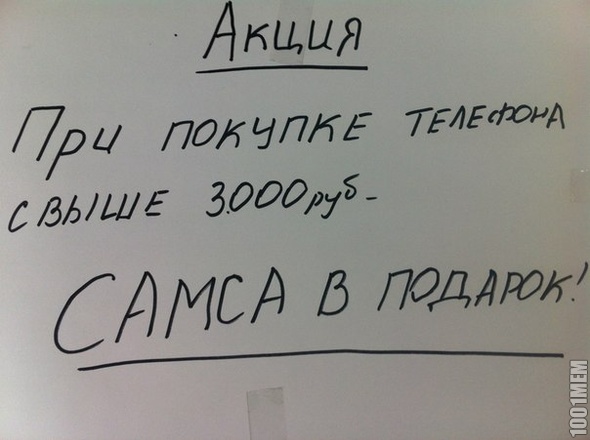 Акция
При покупке телефона
свыше 3.000 руб-
САМСА В ПОДАРОК!
1001МЕМ